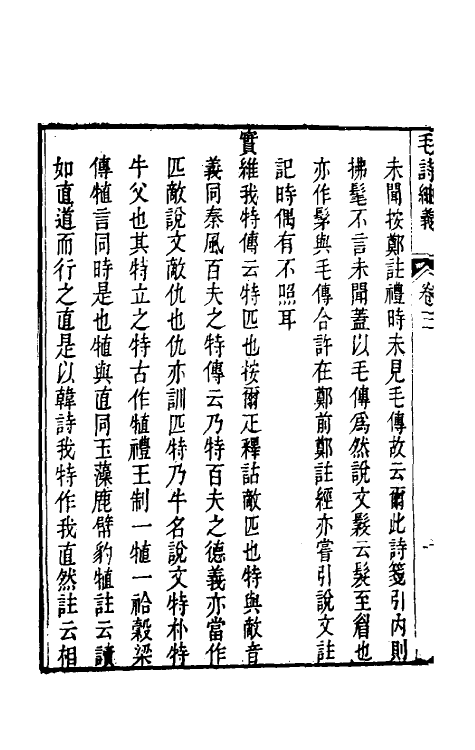 毛詩紬義 卷三
未聞按鄭註禮時未見毛傳故云爾此詩箋引內則
拂髦不言未聞蓋以毛傳爲然說文髳云髮至眉也
亦作髳與毛傳合許在鄭前鄭註經亦嘗引說文註
記時偶有不照耳
實維我特傳云特匹也按爾疋釋詁敵匹也特與敵音
義同秦風百夫之特傳云乃特百夫之德義亦當作
匹敵說文敵仇也仇亦訓匹特乃牛名說文特朴特
牛父也其特立之特古作犆禮王制一犆一祫穀梁
傳犆言同時是也犆與直同玉藻鹿幦豹犆註云讀
如直道而行之直是以韓詩我特作我直然註云相